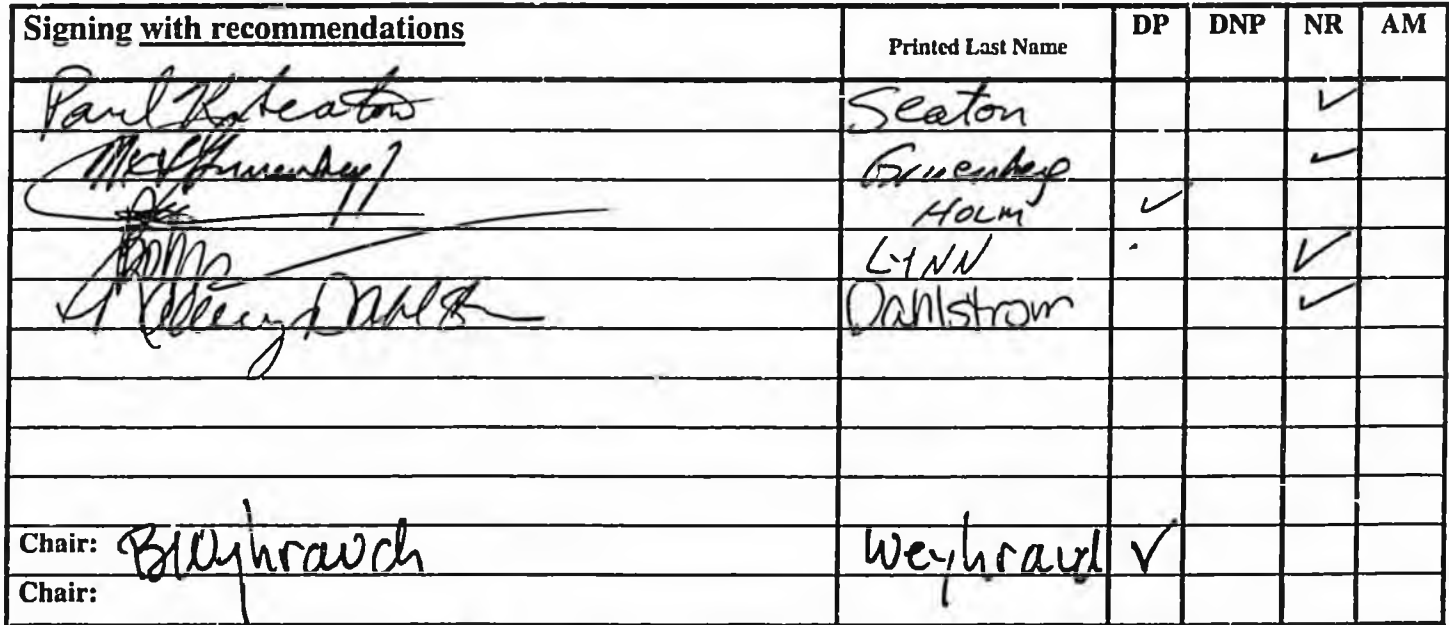 Signing with recommendations Printed Last Name DP DNP NR AM
Paul K Seaton Seaton ✓
Gruenberg ✓
Holm ✓
LYNN ✓
Dahlstrom ✓
Chair: BWeyhrauch Weyhrauch ✓
Chair: